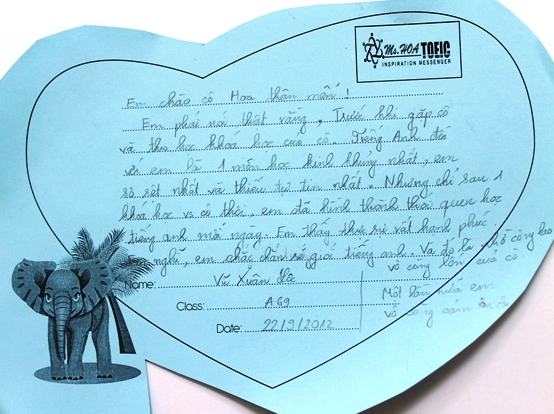 Ms. HOA TOEIC
INSPIRATION MESSENGER
Em chào cô Hoa thân mến !
Em phải nói thật rằng, Trước khi gặp cô
và theo học khoá học của cô. Tiếng Anh đối
với em là 1 môn học kinh khủng nhất, em
sợ sệt nhất và thiếu tự tin nhất. Nhưng chỉ sau 1
khoá học vs cô thôi, em đã hình thành thói quen học
tiếng anh mỗi ngày. Em thấy thực sự rất hạnh phúc
Em nghĩ, em chắc chắn sẽ giỏi tiếng anh. Và đó là nhờ công lao
vô cùng lớn của cô
Một lần nữa em
vô cùng cảm ơn
Name: Vũ Xuân
Class: A69
Date: 22/9/2012